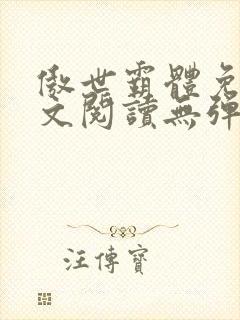 傲世霸體免
文閱讀無彈
汪傳寶